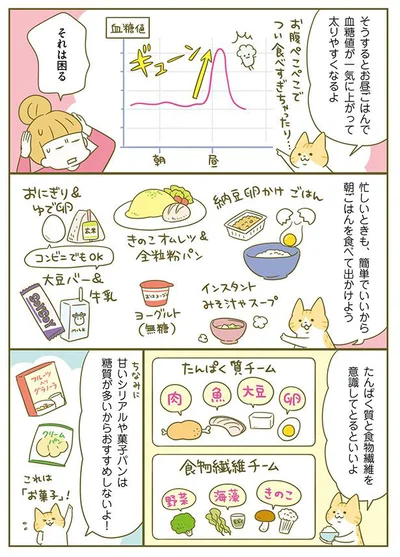 そうするとお昼ごはんで
血糖値が一気に上がって
太りやすくなるよ
お腹ぺこぺこで
つい食べすぎちゃったり…
血糖値
ギューン
朝
昼
それは困る
忙しいときも、簡単でいいから
朝ごはんを食べて出かけよう
納豆卵かけごはん
きのこオムレツ&
全粒粉パン
おにぎり&
ゆで卵
玄米
コンビニでもOK
大豆バー&
牛乳
ヨーグルト
(無糖)
インスタント
みそ汁やスープ
たんぱく質と食物繊維を
意識してとるといいよ
たんぱく質チーム
肉
魚
大豆
卵
食物繊維チーム
野菜
海藻
きのこ
ちなみに
甘いシリアルや菓子パンは
糖質が多いからおすすめしないよ!
フルーツ
グラノーラ
クリーム
パン
これは
「お菓子」!